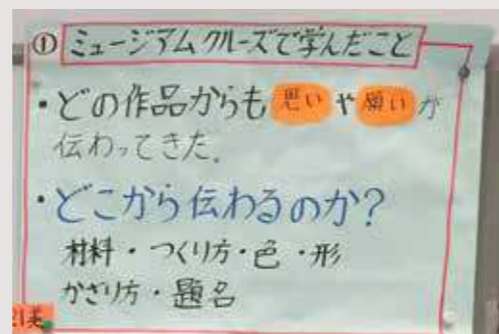 ① ミュージアムクルーズで学んだこと
・どの作品からも思いや願いが
伝わってきた。
・どこから伝わるのか?
材料・つくり方・色・形
かざり方・題名